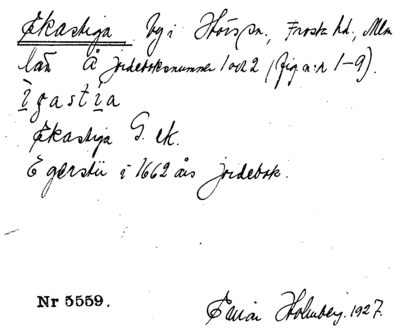 Ekastiga by i Hörs sn., Frosta hd., Mlm
län å jordeboksnummer 1 och 2 (fig. n:r 1-9).
ïgastïa
Ekastiga G. ek.
Egerstii i 1662 års jordebok.
Nr 5559.
Einar Holmberg. 1927.